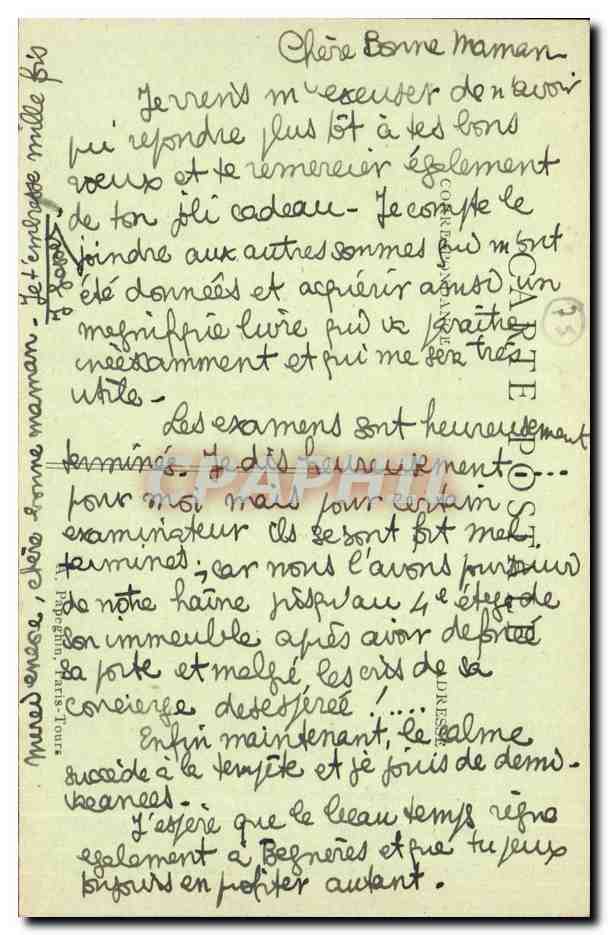 Chère Bonne Maman
Je viens m'excuser de n'avoir
pu répondre plus tôt à tes bons
voeux et te remercier également
de ton joli cadeau - Je compte le
joindre aux autres sommes qui m'ont
été données et acquérir ainsi un
magnifique livre qui va paraître
incessamment et qui me sera très
utile -
Les examens sont heureusement
terminés. Je dis heureusement ....
pour moi mais pour certain
examinateur ils se sont fort mal
terminés ; car nous l'avons poursuivi
de notre haine jusqu'au 4e étage de
son immeuble après avoir défoncé
sa porte et malgré les cris de sa
concierge désespérée !....
Enfin maintenant, le calme
succède à la tempête et je jouis de demi-
vacances -
J'espère que le beau temps règne
également à Bagnères et que tu peux
toujours en profiter autant.
merci encore, chère bonne maman - Je t'embrasse mille fois
CARTE POSTALE
CORRESPONDANCE
ADRESSE
Papeghin, Paris-Tours
75
CPAPHIL